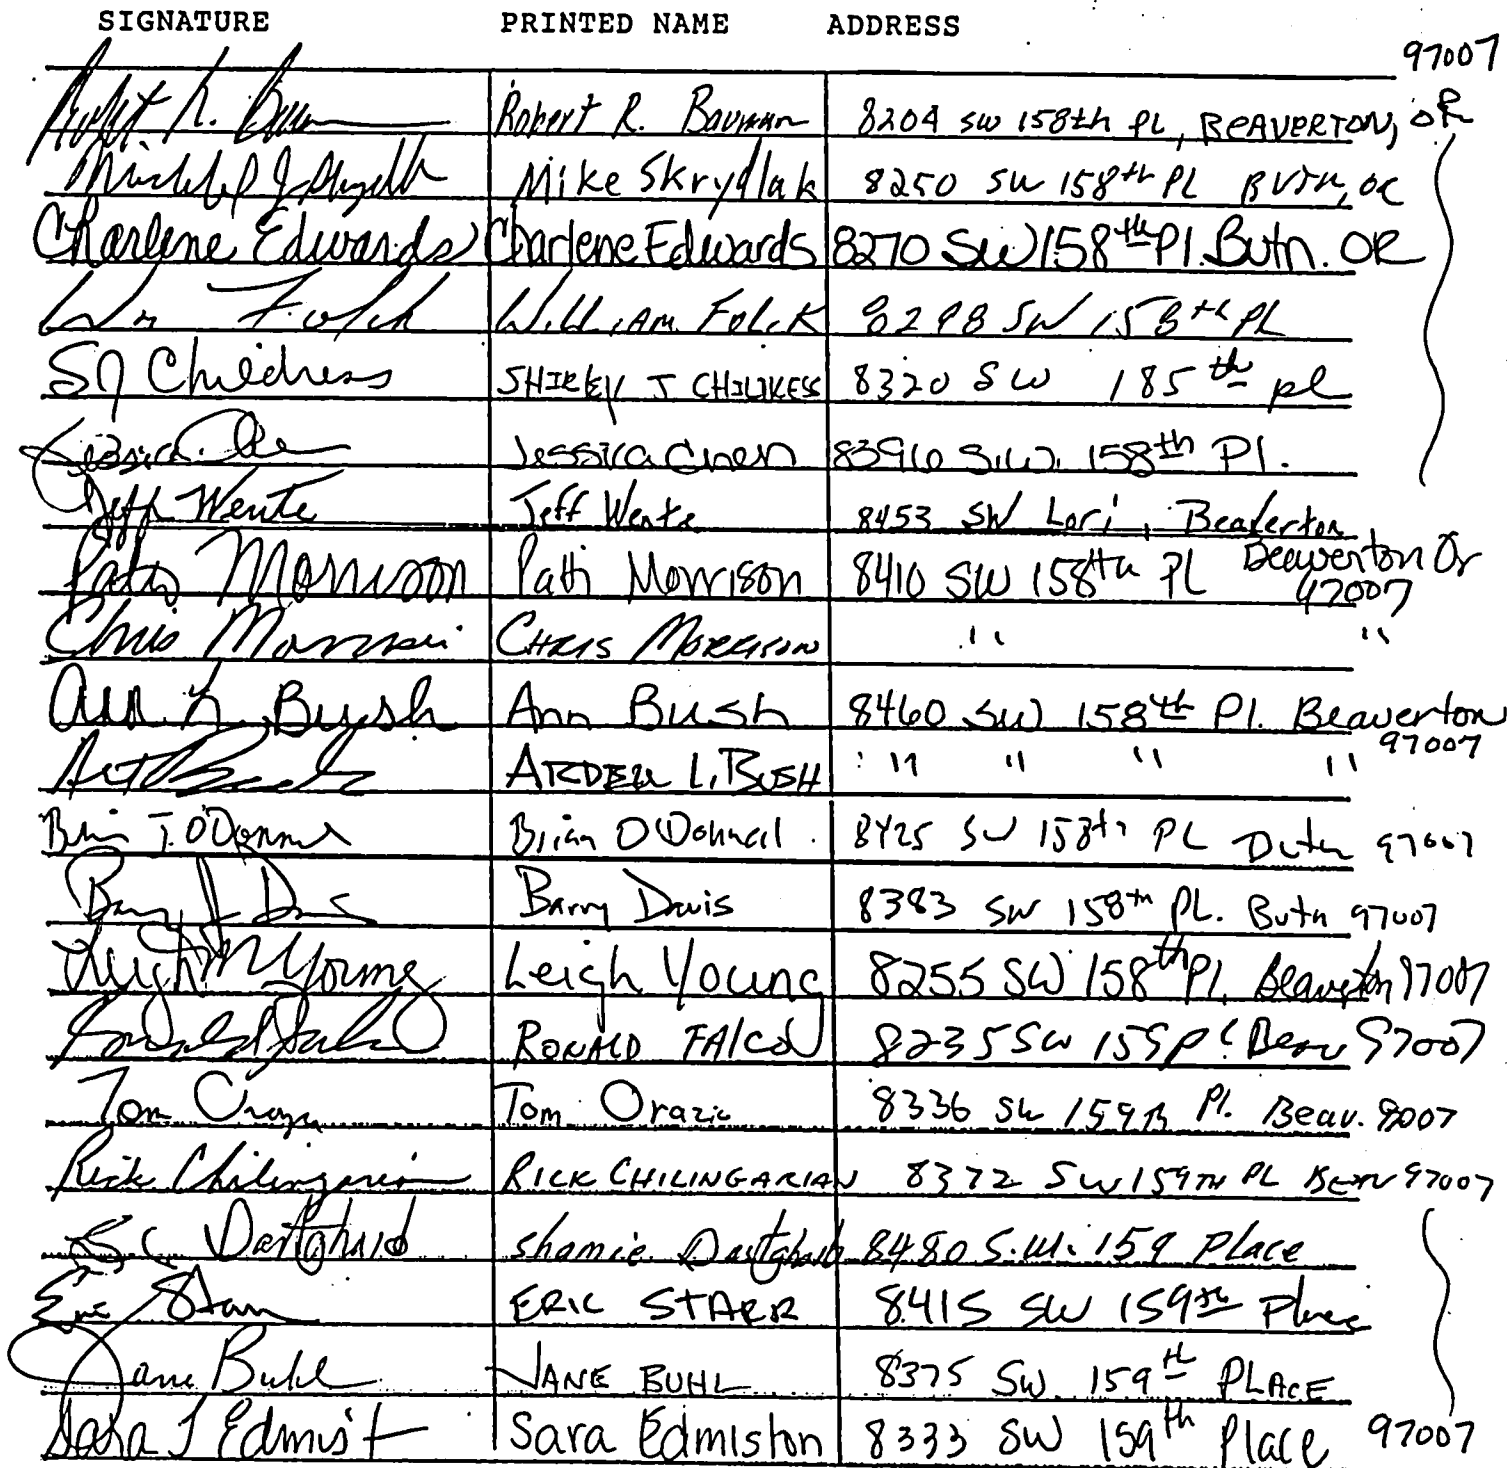 SIGNATURE PRINTED NAME ADDRESS
97007
Robert R. Bauman 8204 SW 158th PL, BEAVERTON, OR
Mike Skrydlak 8250 SW 158th PL BVTN, OR
Charlene Edwards Charlene Edwards 8270 SW 158th Pl. Bvtn. OR
Wm Folck William Folck 8298 SW 158th PL
SJ Childress SHIRLEY J CHILDRESS 8320 SW 185th pl
Jessica Chen Jessica Chen 8396 S.W. 158th Pl.
Jeff Wente Jeff Wente 8453 SW Lori, Beaverton
Patti Morrison Patti Morrison 8410 SW 158th PL Beaverton Or
97007
Chris Morrison CHRIS MORRISON " "
Ann K. Bush Ann Bush 8460 SW 158th Pl. Beaverton
97007
Art Bush ARDELL L. BUSH " " " "
Brian T. O'Donnell Brian O'Donnell 8425 SW 158th PL Bvtn 97007
Barry Davis Barry Davis 8383 SW 158th PL. Bvtn 97007
Leigh M Young Leigh Young 8255 SW 158th Pl. Beaverton 97007
Ronald Falco RONALD FALCO 8235 SW 159 Pl Beav 97007
Tom Orazio Tom Orazio 8336 SW 159th Pl. Beav. 97007
Rick Chilingarian RICK CHILINGARIAN 8372 SW 159TH PL BEAV 97007
Shamie 8480 S.W. 159 Place
Eric Starr ERIC STARR 8415 SW 159th Place
Jane Buhl JANE BUHL 8375 SW. 159th PLACE
Sara J Edmist Sara Edmiston 8333 SW 159th Place 97007